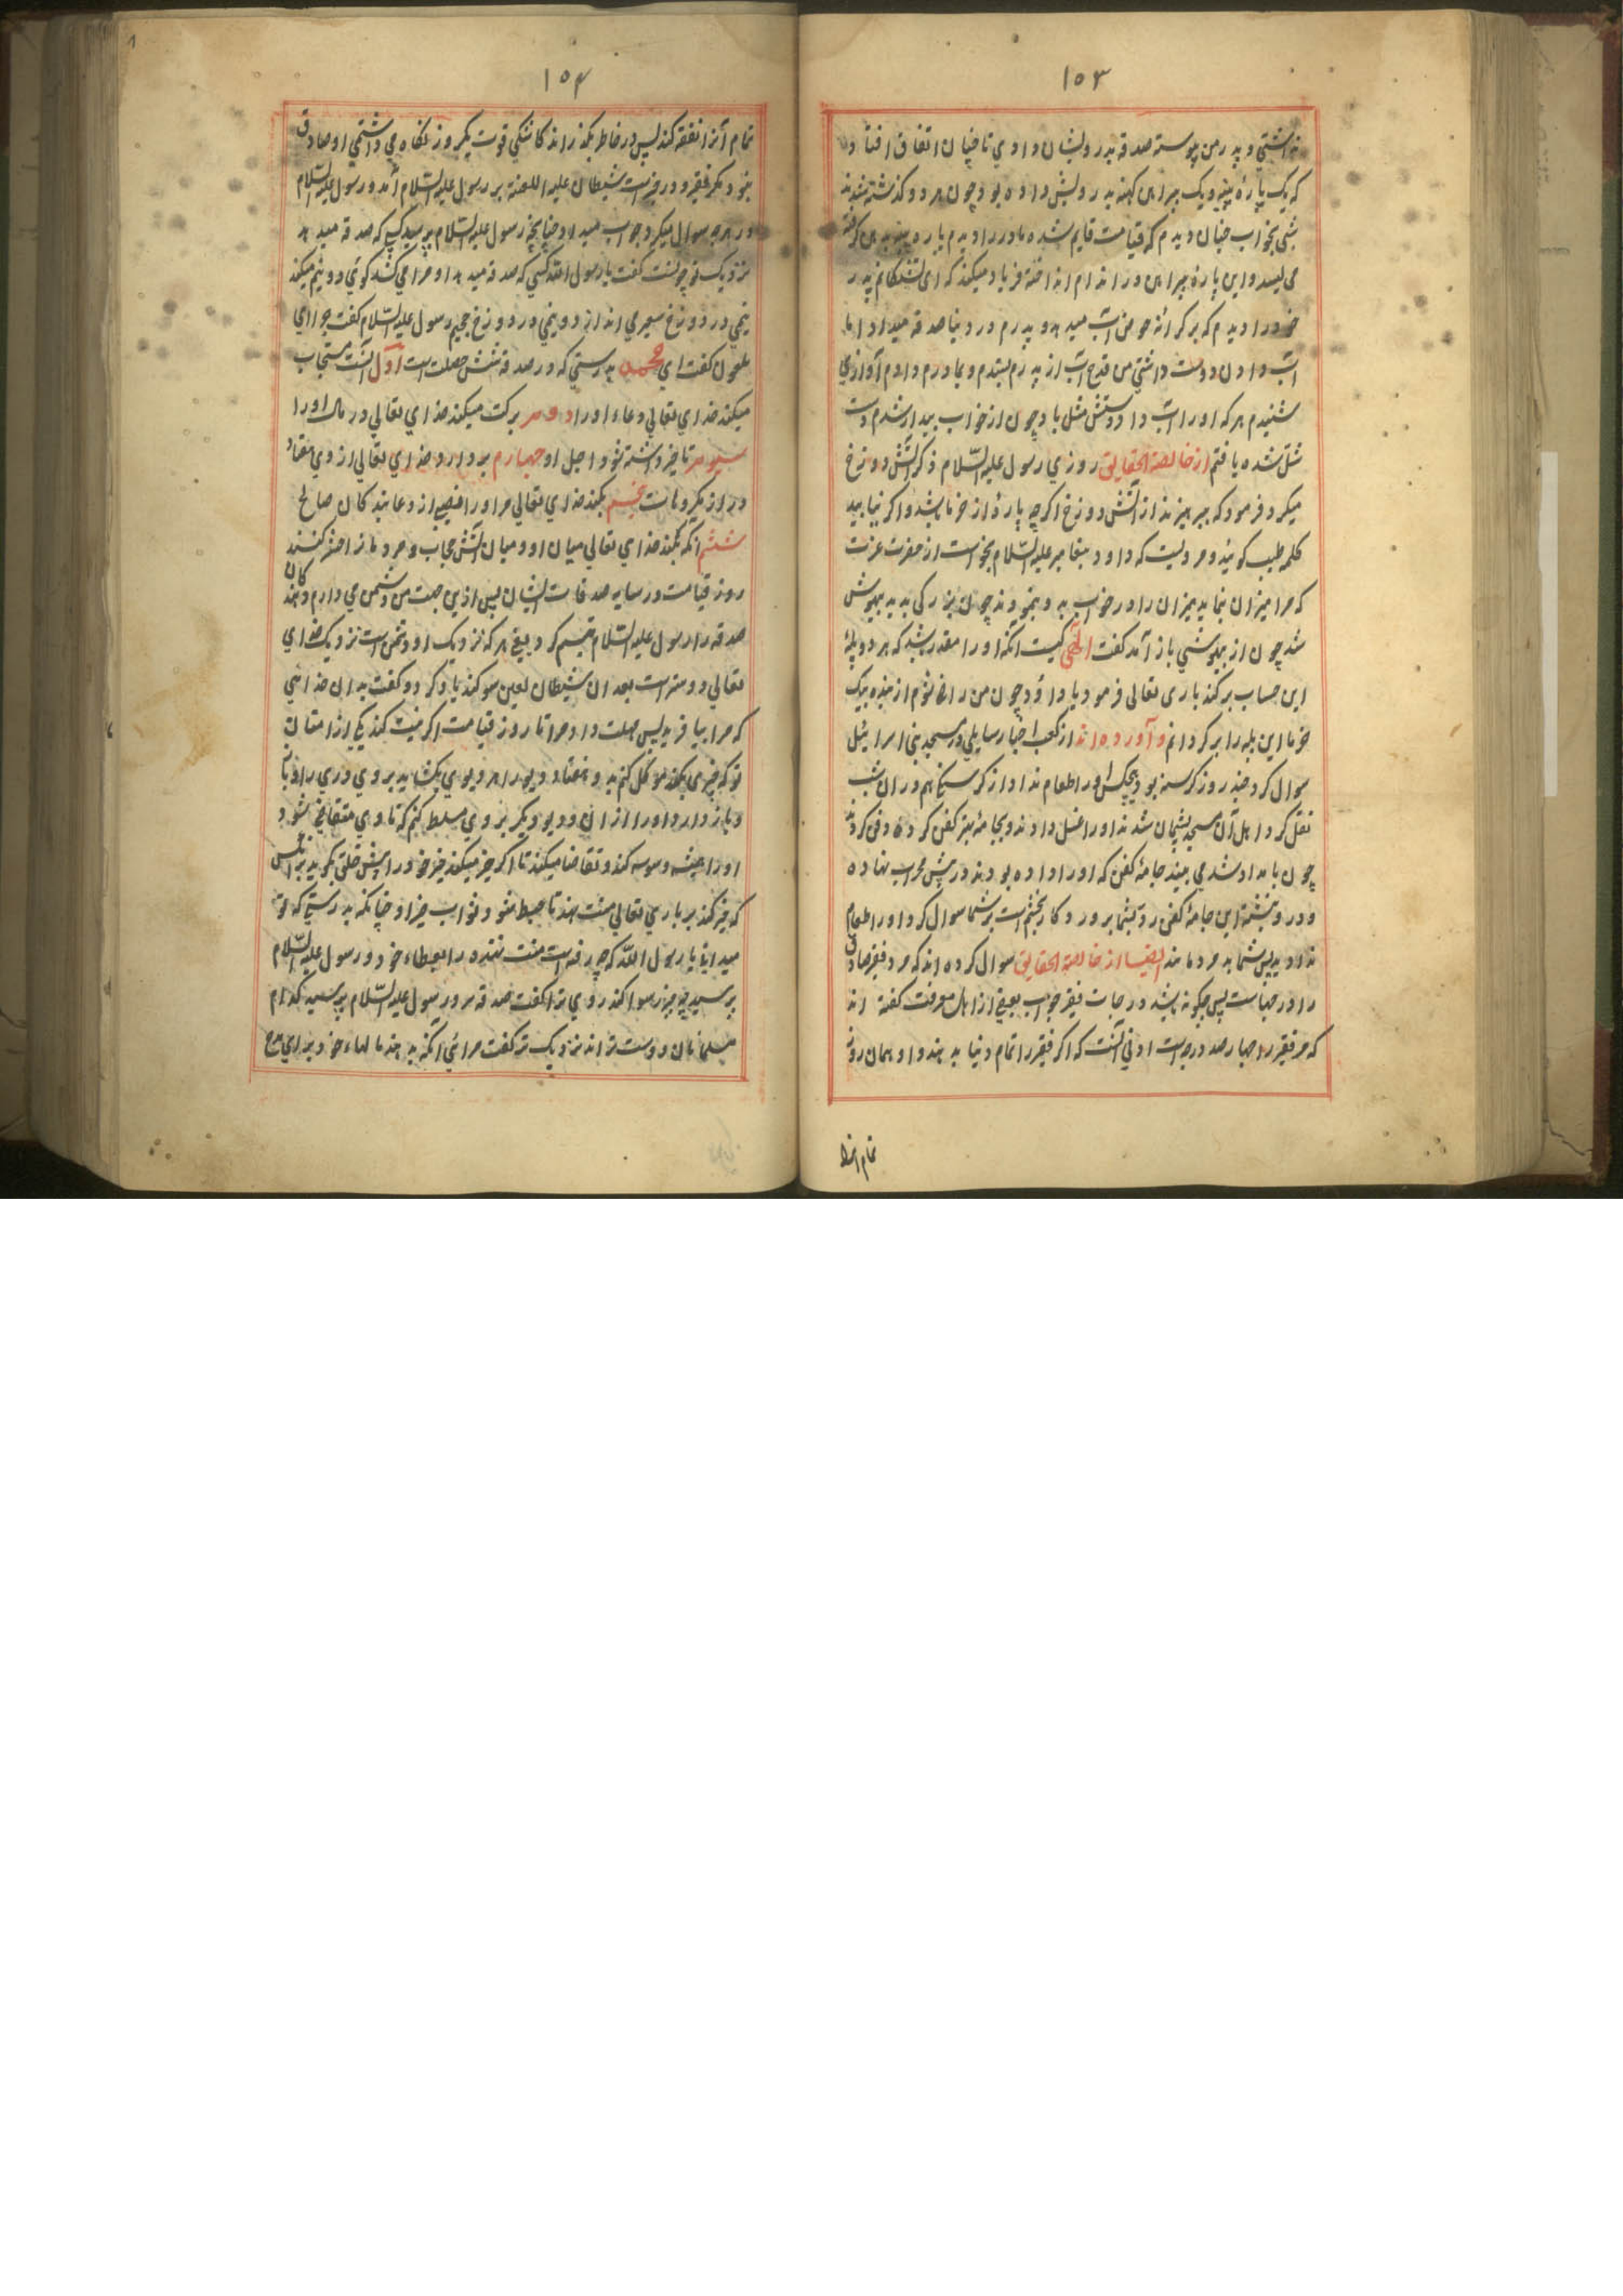 ۱۵۳
نداشتي و پدر من پيوسته صدقه بدرويشان دادي تا چنان اتفاق افتاد
که يک پارهٔ پنبه و يک پيراهن کهنه بدرويش داده بود چون هر دو گذشته شدند
شبي بخواب چنان ديدم که قيامت قايم شده مادر را ديدم پاره پنبه بدهن گرفته
مي ليسد و اين پارهٔ پيراهن در اندام انداخته فرياد ميکند که اي تشنگانم پدر
خود را ديدم که بر کرانهٔ حوض آب ميدهد و پدرم در دنيا صدقه ميداد اما
آب دادن دوست داشتي من قدح آب از پدرم بستدم و بمادرم دادم آوازي
شنيدم هر که او را آب داد دستش شل باد چون از خواب بيدار شدم دست
شل شده يافتم از خالصة الحقايق روزي رسول عليه السّلام ذکر آتش دوزخ
ميکرد فرمود که بپرهيزند از آتش دوزخ اگرچه پارهٔ از خرما باشد و اگر نيابيد
کلمه طيب گوئيد و مرويست که داود پيغامبر عليه السّلام بخواست از حضرت عزت
که مرا ميزان بنمايد ميزان را در خواب بدو بنمودند چون بزرگي بديد بيهوش
شد چون از بيهوشي باز آمد گفت الهي کيست آنکه او را مقدر باشد که هر دو پلهٔ
اين حساب بر کند باري تعالي فرمود يا داؤد چون من راضي شوم از بنده بيک
خرما اين پله را بر گردانم و آورده اند از کعب اخبار سايلي در مسجد بني اسرائيل
سوال کرد چند روز گرسنه بود هيچکس او را طعام نداد از گرسنگي هم در آن شب
نقل کرد اهل آن مسجد پشيمان شدند او را غسل دادند و بجامهٔ بهتر کفن کرده دفن کردند
چون بامداد شد مي بينند جامهٔ کفن که او را داده بودند در پيش محراب نهاده
و درو نبشته اين جامهٔ کفن رد بشما پروردگار بخشم است بر شما سوال کرد او را طعام
نداديد پس شما بد مردمانند ايضا از خالصة الحقايق سوال کرده اند که مرد فقير صادق
را درجهاست پس چگونه باشد درجات فقير جواب بعضي از اهل معرفت گفته اند
که مر فقير را چهار صد درجه است ادني آنست که اگر فقير را تمام دنيا بدهند و او همان روز
تمام آنرا
۱۵۴
تمام آنرا نفقه کند پس در خاطر بگذراند کاشکي قوت يکروز نگاه مي داشتمي او صادق
نبود مگر بفقر و در خبر است شيطان عليه اللعنة بر رسول عليه السّلام آمد و رسول عليه السّلام
در هرچه سوال ميکرد جواب ميداد چنانچه رسول عليه السّلام پرسيد کسي که صدقه ميدهد
نزديک تو چونست گفت يا رسول الله کسي که صدقه ميدهد او مرا مي کشد گوئي دو نيم ميکند
نيمي در دوزخ سعير مي اندازد و نيمي در دوزخ جحيم رسول عليه السّلام گفت چرا اي
ملعون گفت اي محمد بدرستي که در صدقه شش خصلت است اوّل آنست مستجاب
ميکند خداي تعالي دعاء او را دوم برکت ميکند خداي تعالي در مال او را
سيوم تاخير داشته شود اجل او چهارم بردارد خداي تعالي از وي هفتاد
در از مکروهات پنجم بکند خداي تعالي مر او را نصيب از دعا بندکان صالح
ششم آنکه بکند خداي تعالي ميان او و ميان آتش حجاب و مردمانرا حشر کنند
روز قيامت در سايه صدقات ايشان پس ازين جهت من دشمن مي دارم دهندکان
صدقه را رسول عليه السّلام تبسم کرد يعني هر که نزديک او دشمن است نزديک خداي
تعالي دوستر است بعد آن شيطان لعين سوگند ياد کرد و گفت بدان خدائي
که مرا بيافريد پس مهلت داد مرا تا روز قيامت اگر نيت کند يکي از امتان
تو که چيزي بکند موکل کنم بدو هفتاد ديو را هر ديوي بکشايد بروي دري را و
باز دارد او را از آن و ديو ديگر بروي مسلط کنم که تا وي متقاضي شود
او را هميشه وسوسه کند و تقاضا ميکند تا اگر خير ميکند خير خود را پيش خلق بگويد پس
که خير کند بر باري تعالي منت نهد تا حبط شود ثواب خير او چنانکه بدرستي که تو
ميداني يا رسول الله که چه رفته است منت نهنده را بعطاء خود و رسول عليه السّلام
پرسيد چه چيز رسوا کند روي ترا گفت صدقه سر و رسول عليه السّلام پرسيد کدام
مسلمانان دوست تر اند نزديک تو گفت مرائي آنکه بدهند مالهاء خود براي مدح